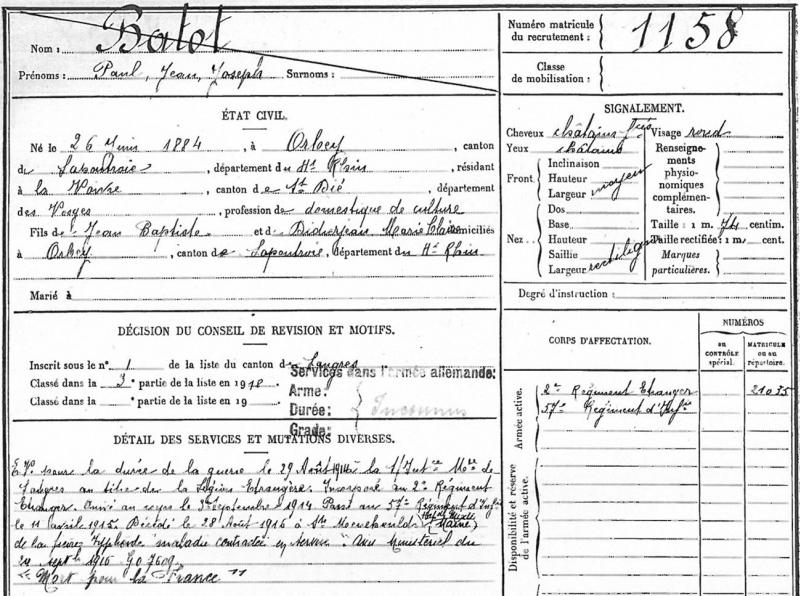 Nom : Batot
Prénoms : Paul, Jean, Joseph Surnoms :
Numéro matricule du recrutement : 1158
Classe de mobilisation :
ÉTAT CIVIL.
Né le 26 Juin 1884, à Orbey, canton
de Lapoutroie, département du Ht Rhin, résidant
à la Voivre, canton de St Dié, département
des Vosges, profession de domestique de culture
Fils de Jean Baptiste et de Didierjean Marie Claire domiciliés
à Orbey, canton de Lapoutroie, département du Ht Rhin
Marié à
SIGNALEMENT.
Cheveux châtains Visage rond
Yeux châtains
Front. Inclinaison
Hauteur moyen
Largeur
Nez. Dos
Base
Hauteur
Saillie rectiligne
Largeur
Renseignements physionomiques complémentaires.
Taille : 1 m. 74 centim.
Taille rectifiée : 1 m. cent.
Marques particulières.
Degré d'instruction :
DÉCISION DU CONSEIL DE REVISION ET MOTIFS.
Inscrit sous le n° 1 de la liste du canton de Langres
Classé dans la 3e partie de la liste en 1918
Classé dans la partie de la liste en 19
Services dans l'armée allemande:
Arme:
Durée: Inconnus
Grade:
CORPS D'AFFECTATION.
NUMÉROS
au CONTRÔLE spécial.
MATRICULE ou au répertoire.
Armée active.
2e Régiment Etranger 21035
57e Régiment d'Infie
Disponibilité et réserve de l'armée active.
DÉTAIL DES SERVICES ET MUTATIONS DIVERSES.
E.V. pour la durée de la guerre le 29 Août 1914 à la S/Intce Mre de
Langres au titre de la Légion Etrangère. Incorporé au 2e Régiment
Etranger. Arrivé au corps le Septembre 1914. Passé au 57e Régiment d'Infie
le 11 avril 1915. Décédé le 28 Août 1916 à Ste Menehould (Marne)
de la fièvre typhoïde maladie contractée en service. Avis ministériel du
24 septbre 1916
"Mort pour la France"